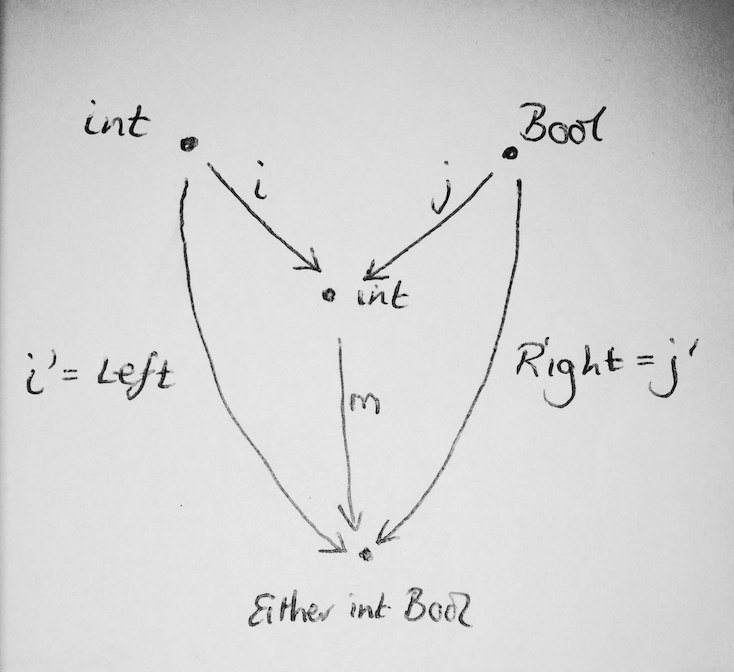 int
Bool
i
j
int
i' = Left
Right = j'
m
Either int Bool